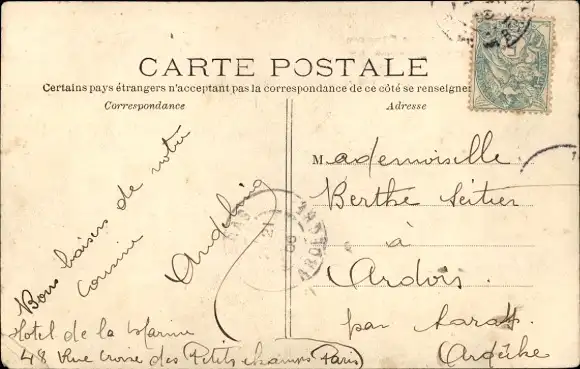 CARTE POSTALE
Certains pays étrangers n'acceptant pas la correspondance de ce côté se renseigner
Correspondance
Adresse
Bons baisers de votre
cousine
Angeling
Hotel de la Marine
48 Rue Croix des Petits champs Paris
Mademoiselle
Berthe
à
Ardoix
par Sarras
(Ardèche